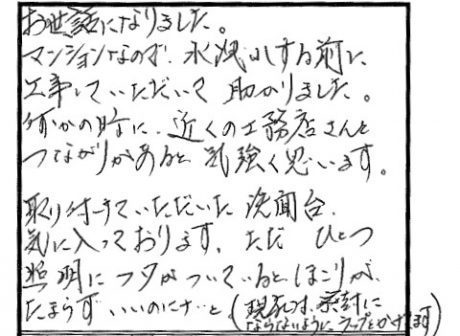 お世話になりました。
マンションなので、水漏れする前に
工事していただいて 助かりました。
何かの時に、近くの工務店さんと
つながりがあると 気強く思います。
取り付けていただいた 洗面台、
気に入っております。ただ ひとつ
照明にフタがついているとほこりが
たまらず いいのになーと(現在は、
ならないように ラップをかけてます)